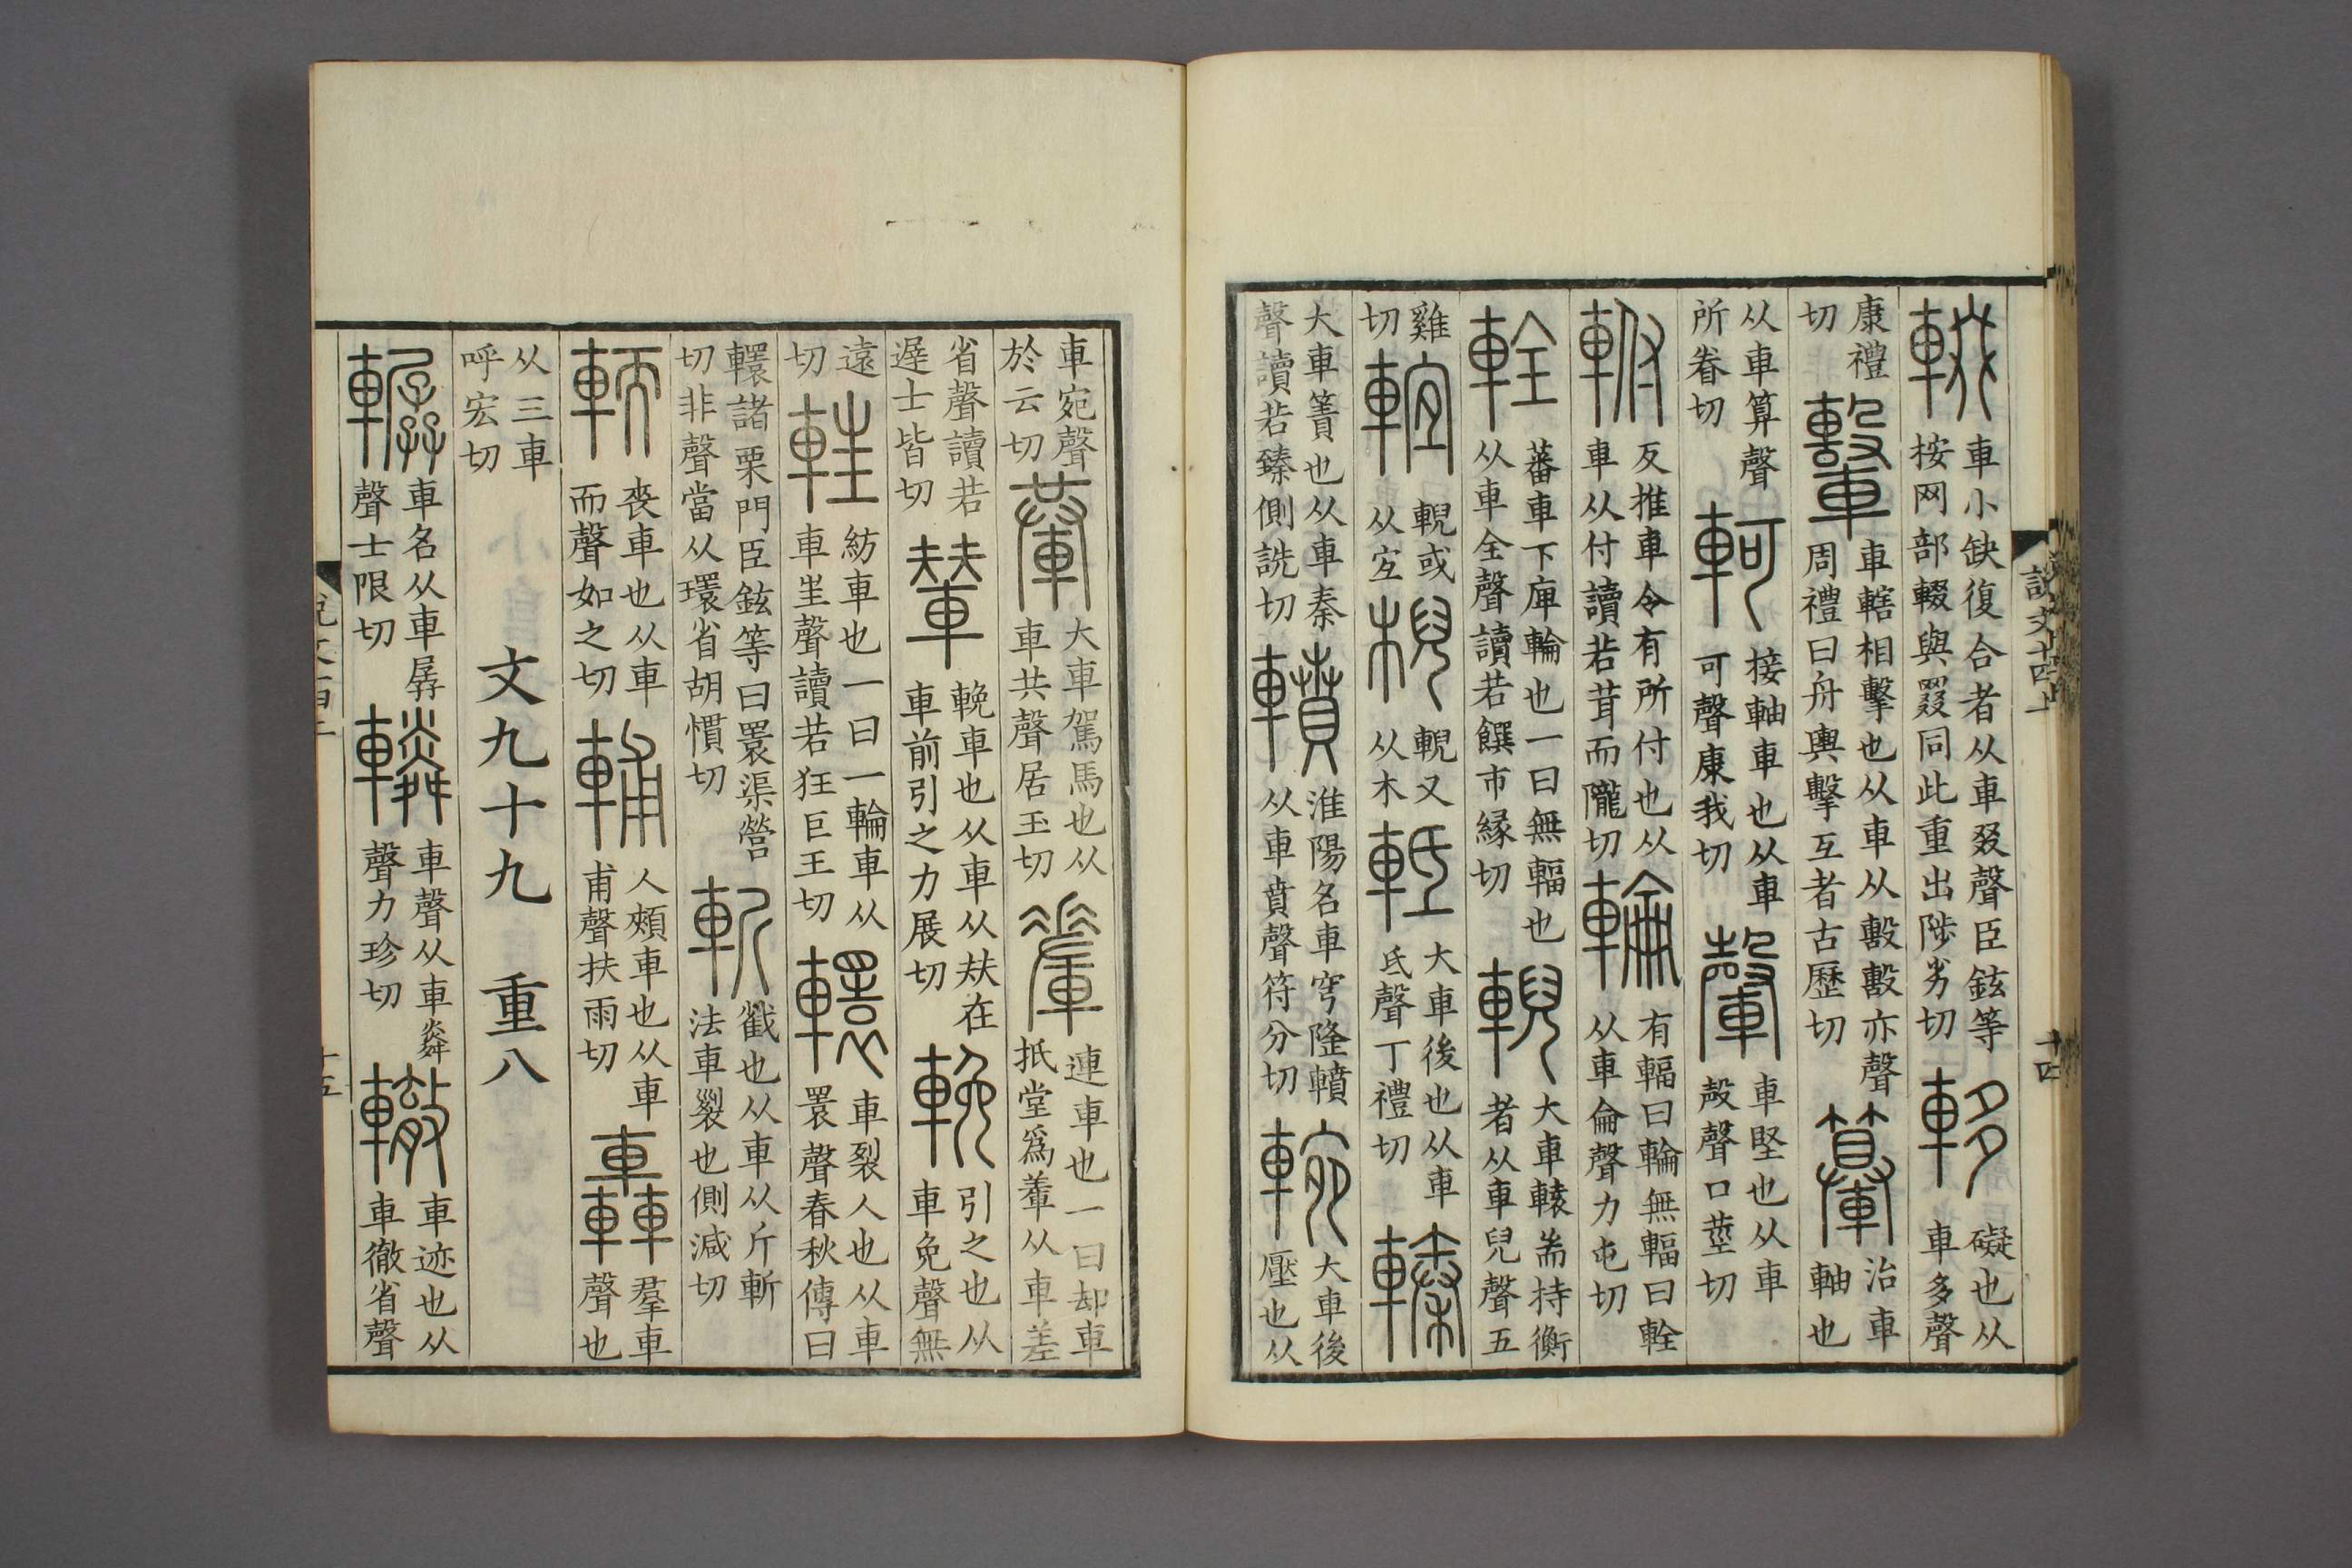 説文十四上
十四
輟車小缺復合者从車叕聲臣鉉等
按网部輟與罬同此重出陟劣切
𨋨礙也从
車多聲
康禮
切
轚車轄相擊也从車从毄毄亦聲
周禮曰舟輿擊互者古歷切
𨏉治車
軸也
从車算聲
所眷切
軻接軸車也从車
可聲康我切
䡰車堅也从車
殸聲口莖切
軵反推車令有所付也从
車从付讀若茸而隴切
輪有輻曰輪無輻曰輇
从車侖聲力屯切
輇蕃車下庳輪也一曰無輻也
从車全聲讀若饌市緣切
輗大車轅耑持衡
者从車兒聲五
雞
切
𨋚輗或
从宜
棿輗又
从木
軧大車後也从車
氐聲丁禮切
轃
大車簀也从車秦
聲讀若臻側詵切
轒淮陽名車穹隆轒
从車賁聲符分切
䡝大車後
壓也从
車宛聲
於云切
輂大車駕馬也从
車共聲居玉切
𨍷連車也一曰却車
抵堂爲𨍷从車差
省聲讀若
遟士皆切
輦輓車也从車从㚘在
車前引之力展切
輓引之也从
車免聲無
遠
切
軖紡車也一曰一輪車从
車㞷聲讀若狂巨王切
轘車裂人也从車
瞏聲春秋傳曰
轘諸栗門臣鉉等曰瞏渠營
切非聲當从環省胡慣切
斬㦸也从車从斤斬
法車裂也側減切
輀喪車也从車
而聲如之切
輔人頰車也从車
甫聲扶雨切
轟羣車
聲也
从三車
呼宏切
文九十九 重八
轏車名从車孱
聲士限切
轔車聲从車粦
聲力珍切
轍車迹也从
車徹省聲